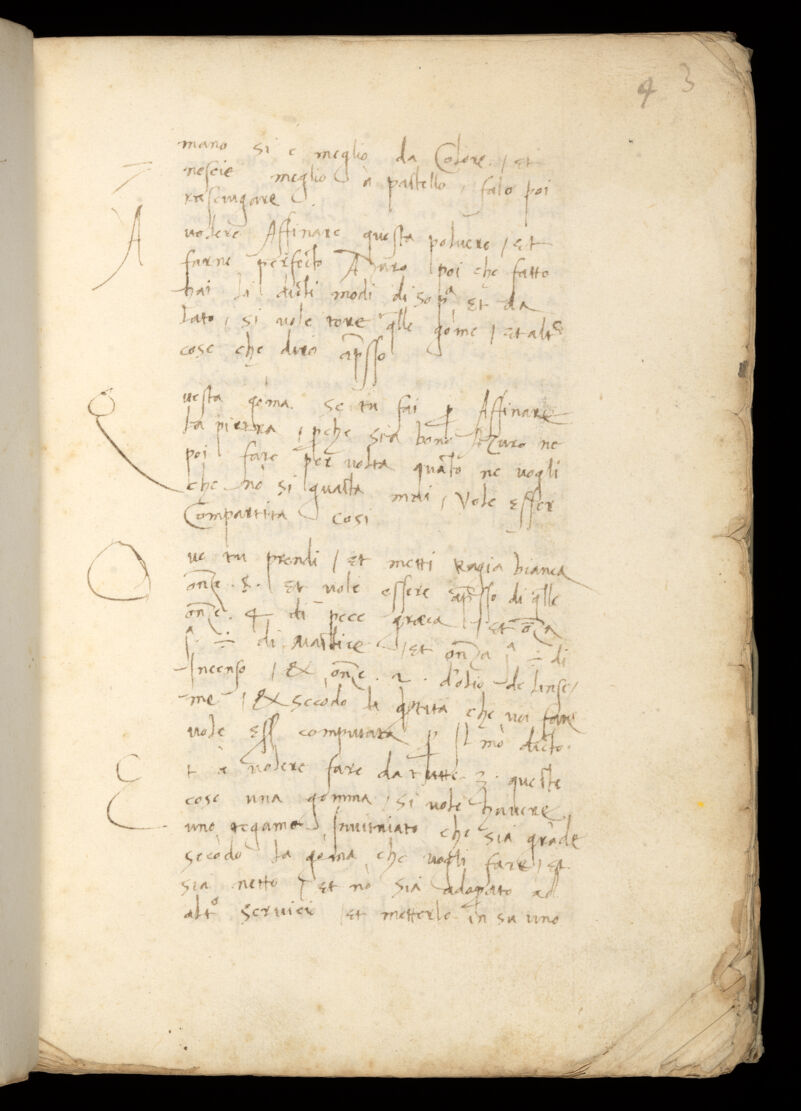 43
mano si è meglio da Colore / et
nescie meglio à pastello, falo poi
rasciugare.
A volere Affinare questa polvere / et
farne perfecto Azuro poi che fatto
hai li dicti modi di sop.ª et da
lato, si vole tore q̃lle gõme / et alt.º
cose che diro ap̃sso
Questa gõma. se tu fai p Affinare
la pietra, pche sia bono Azuro ne
poi fare per volta quãto ne vogli
che nõ si guasta mai, Vole esser
Compartita cosi
Ove tu prendi / et metti Ragia bianca
onze .8. et vole essere ap̃sso di q̃lle
onze. 4 di pece græca / et onza
j. ÷ di Mastice / et onza j ÷ di
Incenso / & onze . 2 . d'olio de linse/
me / & secõdo la q̃tita che voi fare
vole ess computata p il mõ dicto.
Et à volere fare da tutte .3. queste
cose una gomma, si vole havere
uno tegame Invitriato che sia grãde
secõdo la gõma che vogli fare, et
sia netto / et nõ sia adopato ad
alt.º servicio / et metterle in su uno